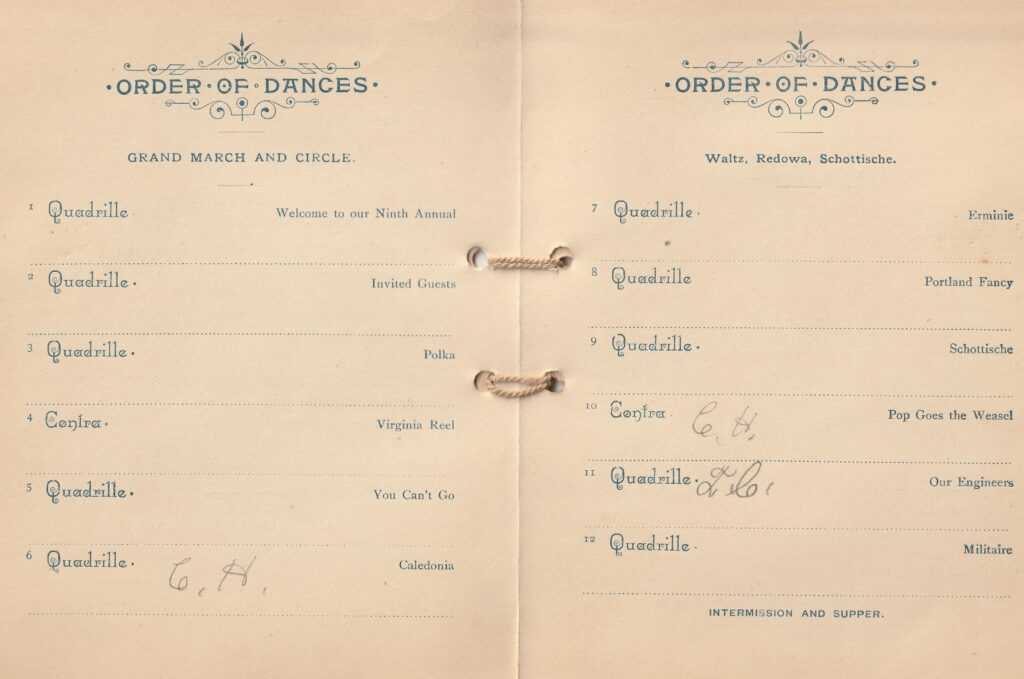 ·ORDER·OF·DANCES·
GRAND MARCH AND CIRCLE.
1 Quadrille. Welcome to our Ninth Annual
2 Quadrille. Invited Guests
3 Quadrille. Polka
4 Contra. Virginia Reel
5 Quadrille. You Can't Go
6 Quadrille. Caledonia
C. H.
·ORDER·OF·DANCES·
Waltz, Redowa, Schottische.
7 Quadrille. Erminie
8 Quadrille Portland Fancy
9 Quadrille. Schottische
10 Contra. C. H. Pop Goes the Weasel
11 Quadrille. Our Engineers
12 Quadrille. Militaire
INTERMISSION AND SUPPER.